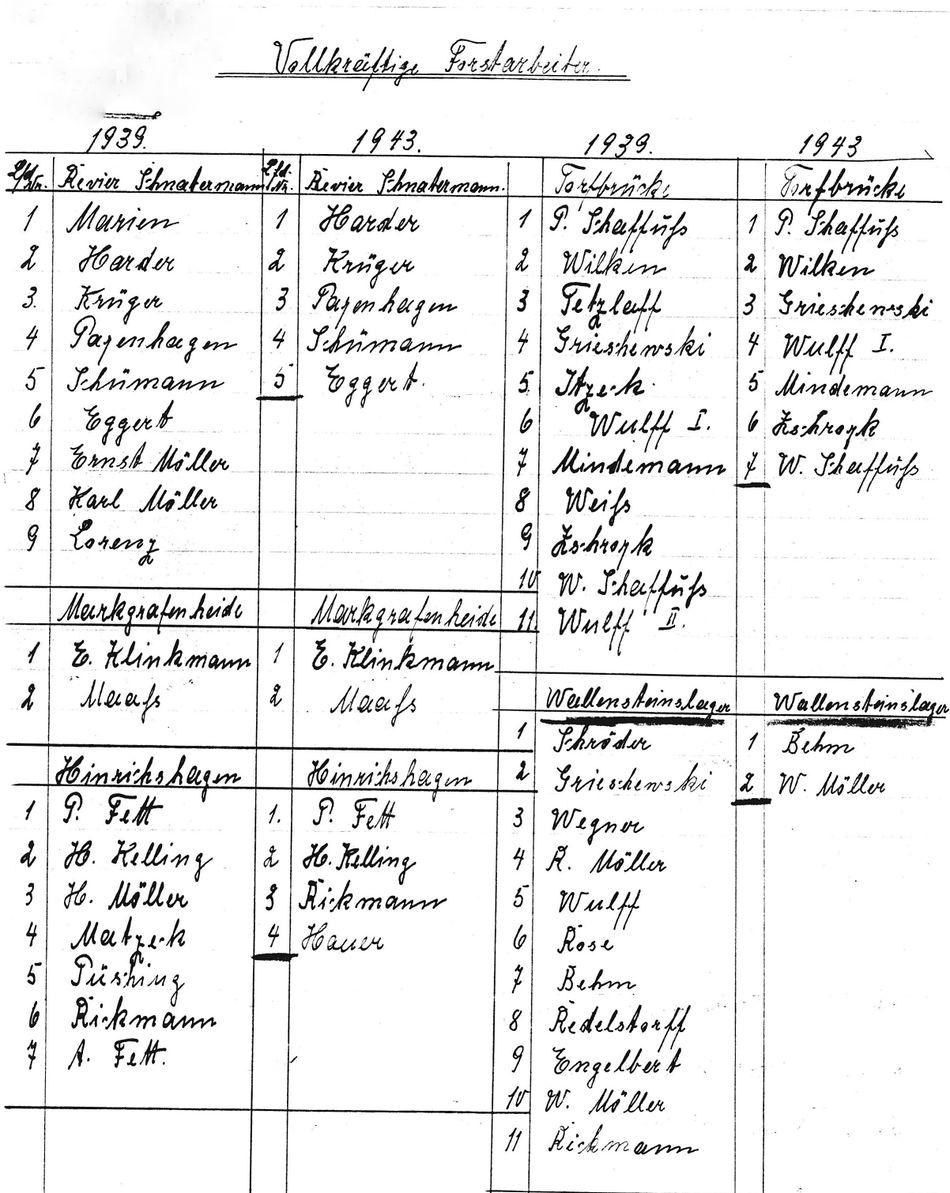 Vollkräftige Forstarbeiter.
1939. 1943. 1939. 1943
Lfd. Nr. Revier Schnatermann Lfd. Nr. Revier Schnatermann. Torfbrücke Torfbrücke
1 Marien 1 Harder 1 P. Schaffuhs 1 P. Schaffuhs
2 Harder 2 Krüger 2 Wilken 2 Wilken
3. Krüger 3 Pagenhagen 3 Tetzlaff 3 Grieschewski
4 Pagenhagen 4 Schümann 4 Grieschewski 4 Wulff I.
5 Schümann 5 Eggert. 5. Itzeck 5 Mindemann
6 Eggert 6 Wulff I. 6 Zschrogk
7 Ernst Möller 7 Mindemann 7 W. Schaffuhs
8 Karl Möller 8 Weihs
9 Lorenz 9 Zschrogk
10 W. Schaffuhs
Markgrafenheide Markgrafenheide 11. Wulff II.
1 E. Klinkmann 1 E. Klinkmann
2 Maahs 2 Maahs Wallensteinslager Wallensteinslager
1 Schröder 1 Behm
Hinrichshagen Hinrichshagen 2 Grieschewski 2 W. Möller
1 P. Fett 1. P. Fett 3 Wegner
2 H. Kelling 2 H. Kelling 4 R. Möller
3 H. Möller 3 Rickmann 5 Wulff
4 Matzeck 4 Hauer 6 Rose
5 Püsching 7 Behm
6 Rickmann 8 Redelstorff
7 A. Fett. 9 Engelbert
10 W. Möller
11 Rickmann